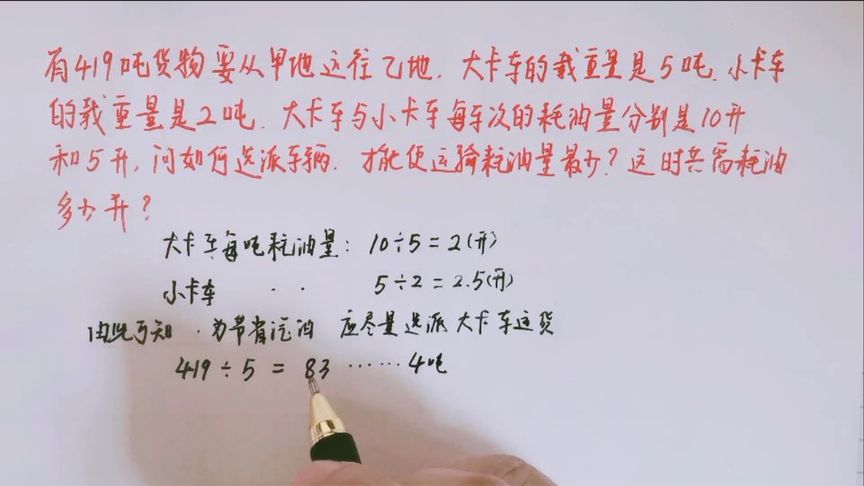 有419吨货物要从甲地运往乙地.大卡车的载重量是5吨.小卡车
的载重量是2吨.大卡车与小卡车每车次的耗油量分别是10升
和5升,问如何选派车辆.才能使运输耗油量最少?这时共需耗油
多少升?
大卡车每吨耗油量:10÷5=2(升)
小卡车 · · 5÷2=2.5(升)
由此可知.为节省汽油 应尽量选派大卡车运货
419÷5=83……4吨